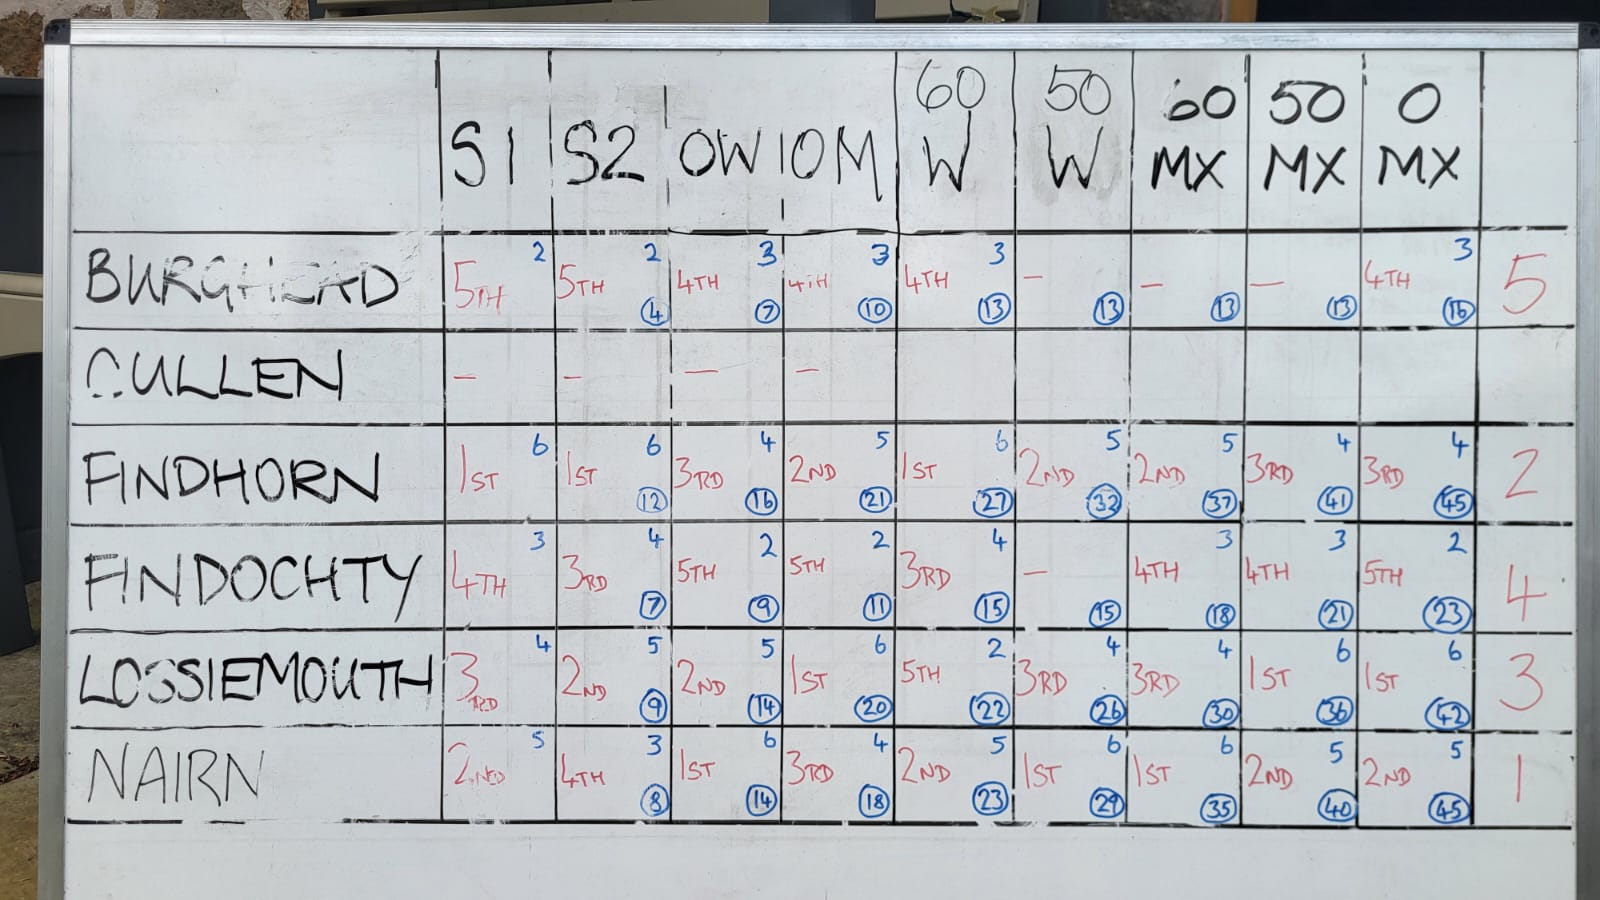 S1 S2 OW OM 60 W 50 W 60 MX 50 MX O MX
BURGHEAD 5TH 2 5TH 2 4 4TH 3 7 4TH 3 10 4TH 3 13 - 13 - 13 - 13 4TH 3 16 5
CULLEN - - - -
FINDHORN 1ST 6 1ST 6 12 3RD 4 16 2ND 5 21 1ST 6 27 2ND 5 32 2ND 5 37 3RD 4 41 3RD 4 45 2
FINDOCHTY 4TH 3 3RD 4 7 5TH 2 9 5TH 2 11 3RD 4 15 - 15 4TH 3 18 4TH 3 21 5TH 2 23 4
LOSSIEMOUTH 3RD 4 2ND 5 9 2ND 5 14 1ST 6 20 5TH 2 22 3RD 4 26 3RD 4 30 1ST 6 36 1ST 6 42 3
NAIRN 2ND 5 4TH 3 8 1ST 6 14 3RD 4 18 2ND 5 23 1ST 6 29 1ST 6 35 2ND 5 40 2ND 5 45 1